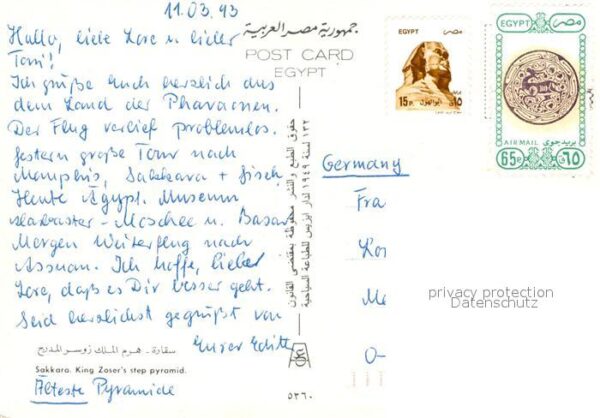 11.03.93
Hallo, liebe Lore u. lieber
Toni!
Ich grüße Euch herzlich aus
dem Land der Pharaonen.
Der Flug verlief problemlos.
Gestern große Tour nach
Memphis, Sakkara + Gizeh
Heute Ägypt. Museum
Alabaster-Moschee u. Basar
Morgen Weiterflug nach
Assuan. Ich hoffe, lieber
Lore, daß es Dir besser geht.
Seid herzlichst gegrüßt von
Eurer Editte
سقارة - هرم الملك زوسر المدرج
Sakkara. King Zoser's step pyramid.
Älteste Pyramide
جمهورية مصر العربية
POST CARD
EGYPT
حقوق الطبع والنشر محفوظة بمقتضى القانون
١٣٢ لسنة ١٩٤٩ لدار ايزيس للطباعة السياحية
٥٣٦٠
EGYPT مصر
15P ١٥
EGYPT مصر
AIR MAIL بريد جوى
65P ٦٥
Germany
Fra
privacy protection
Datenschutz